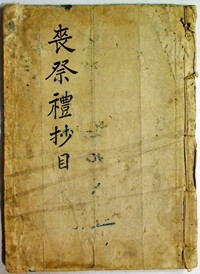 喪祭禮抄目